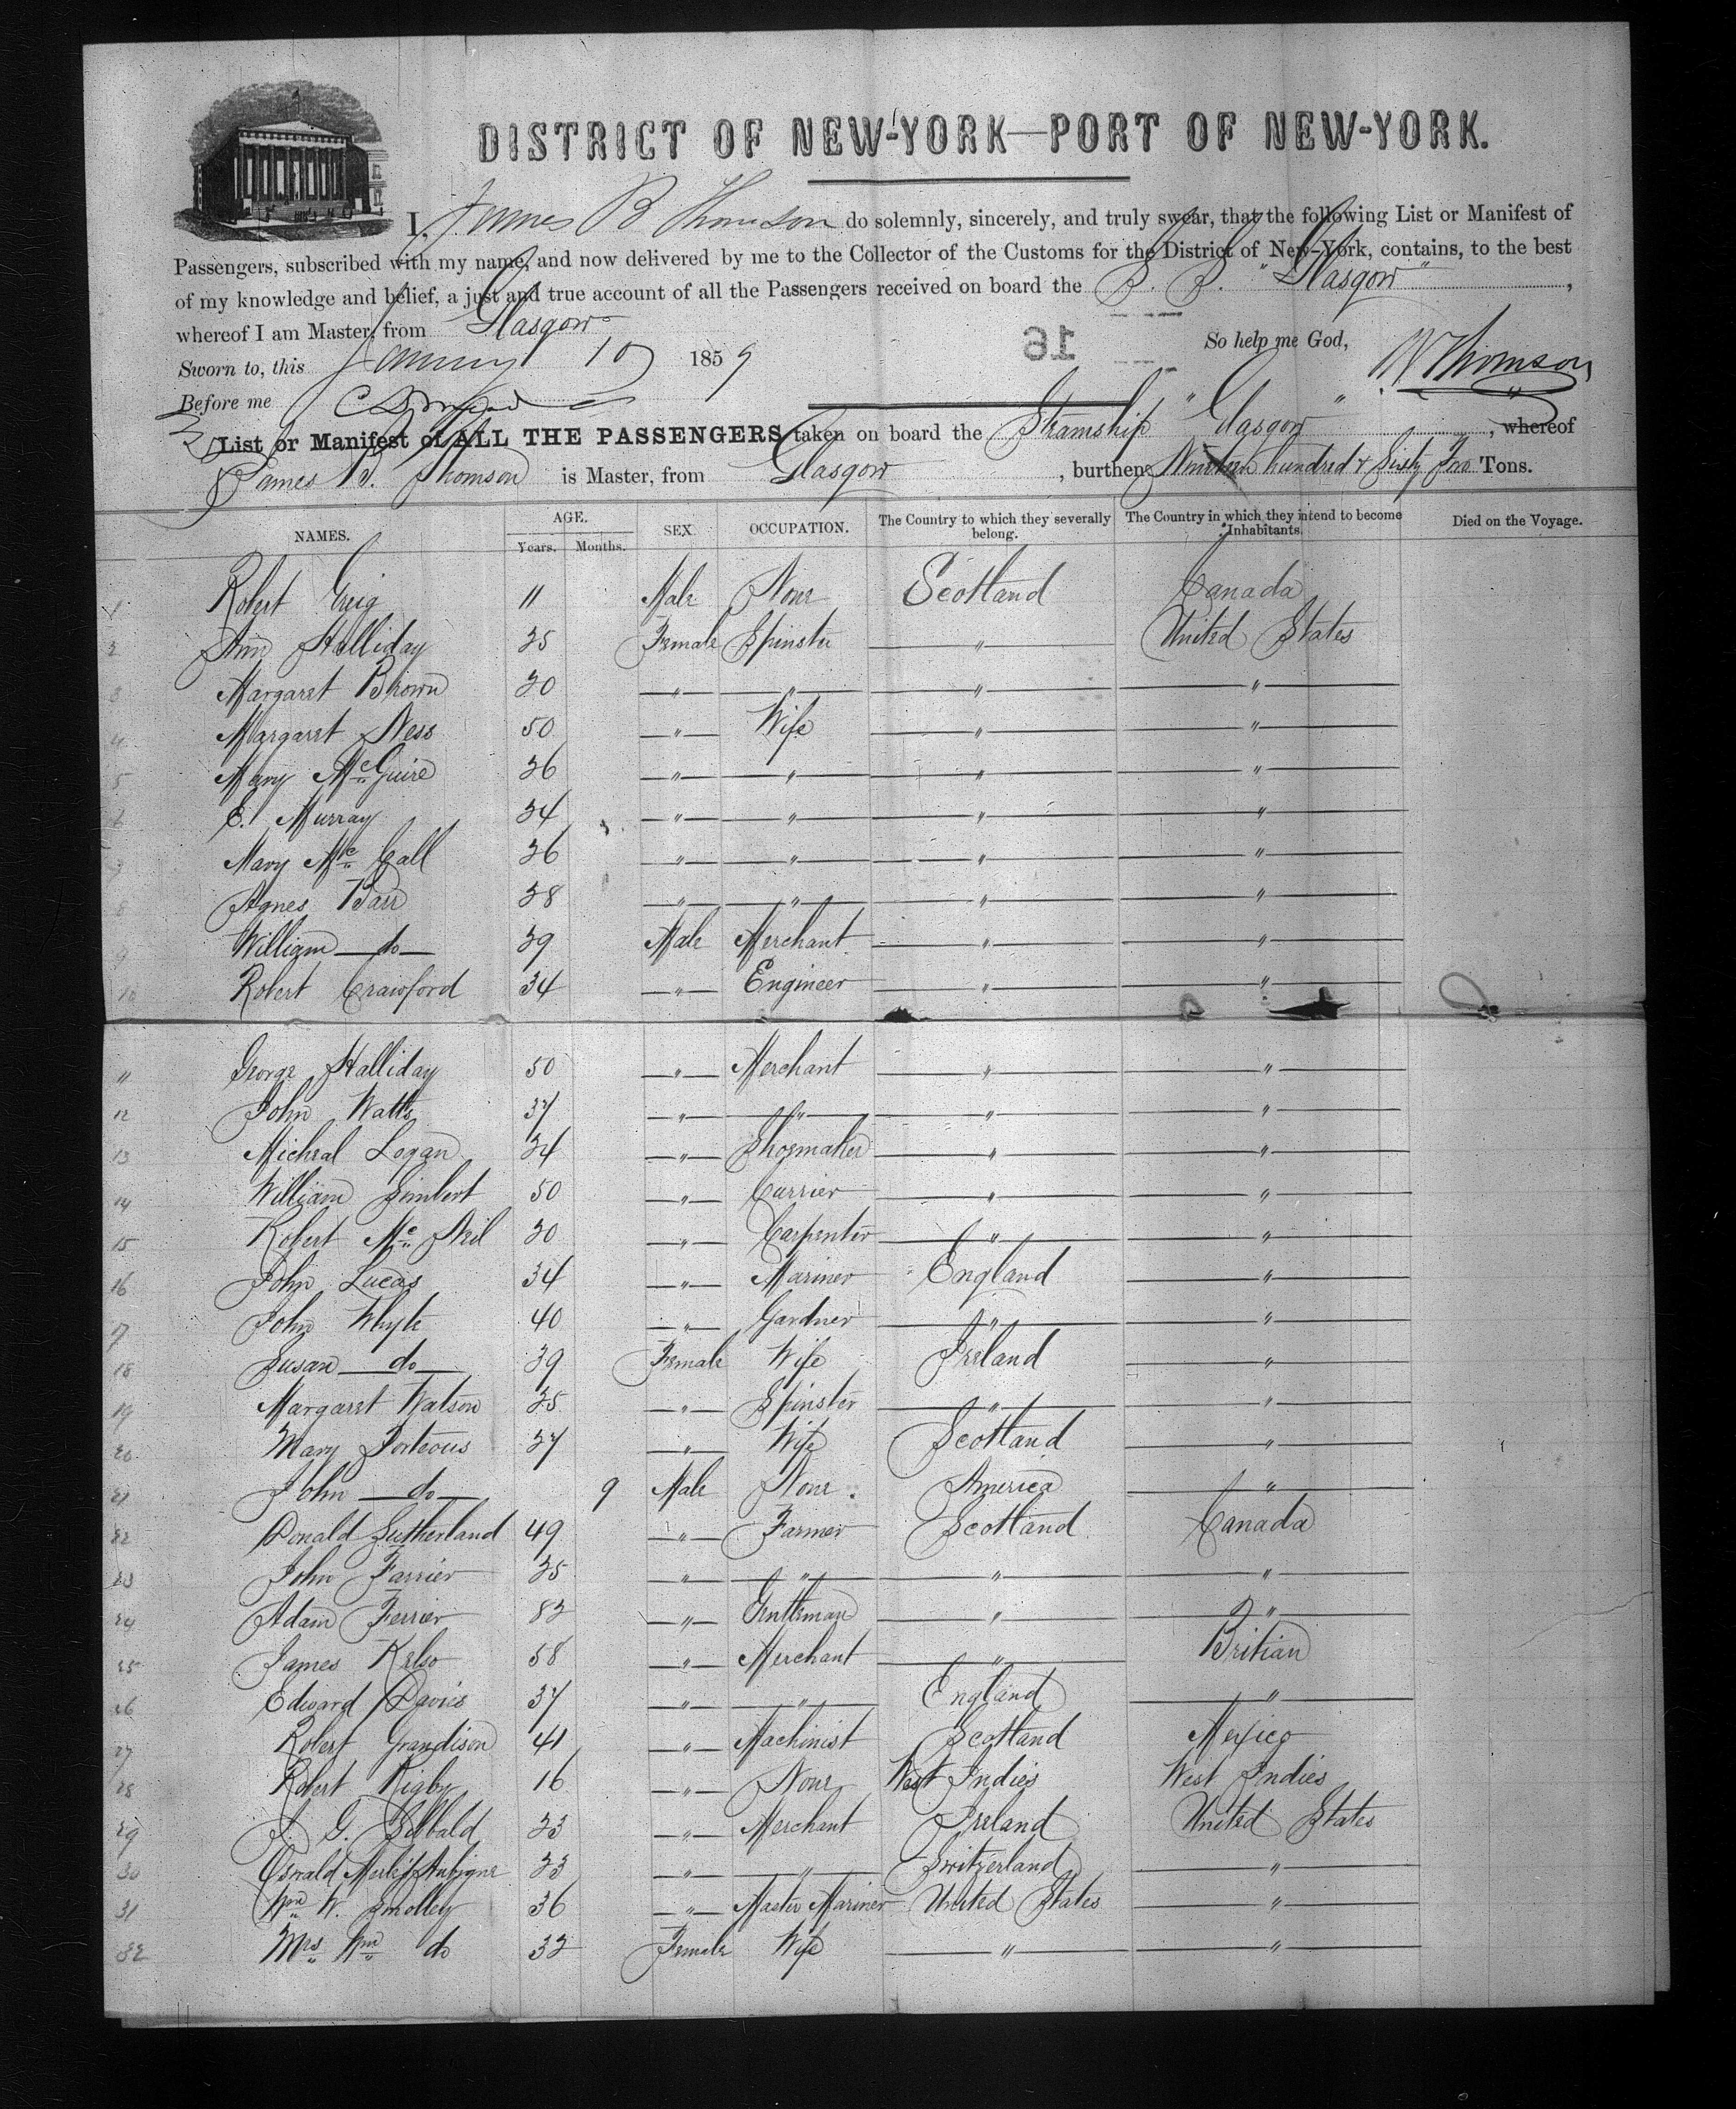 DISTRICT OF NEW-YORK—PORT OF NEW-YORK.
I, James B Thomson do solemnly, sincerely, and truly swear, that the following List or Manifest of
Passengers, subscribed with my name, and now delivered by me to the Collector of the Customs for the District of New-York, contains, to the best
of my knowledge and belief, a just and true account of all the Passengers received on board the S. S. "Glasgow",
whereof I am Master, from Glasgow
16
So help me God,
Sworn to, this January 10 1859
Thomson
Before me
List or Manifest of ALL THE PASSENGERS taken on board the Steamship "Glasgow", whereof
James B. Thomson is Master, from Glasgow, burthen Nineteen hundred & Sixty Two Tons.
NAMES. AGE. Years. Months. SEX OCCUPATION. The Country to which they severally belong. The Country in which they intend to become Inhabitants. Died on the Voyage.
1 Robert Greig 11 Male None Scotland Canada
2 Ann Halliday 25 Female Spinster " United States
3 Margaret Brown 20 " " " "
4 Margaret Ness 50 " Wife " "
5 Mary McGuire 26 " " " "
6 E. Murray 24 " " " "
7 Mary Mc Call 26 " " " "
8 Agnes Barr 28 " " " "
9 William do 29 Male Merchant " "
10 Robert Crawford 34 " Engineer " "
11 George Halliday 50 " Merchant " "
12 John Watts 37 " " " "
13 Micheal Logan 24 " Shoemaker " "
14 William Simbert 50 " Currier " "
15 Robert Mc Neil 20 " Carpenter " "
16 John Lucas 34 " Mariner England "
17 John Whyte 40 " Gardner " "
18 Susan do 39 Female Wife Ireland "
19 Margaret Watson 25 " Spinster " "
20 Mary Porteous 27 " Wife Scotland "
21 John do 9 Male None America "
22 Donald Sutherland 49 " Farmer Scotland Canada
23 John Farrier 25 " " " "
24 Adam Ferrier 82 " Gentleman " "
25 James Kelso 58 " Merchant " Britian
26 Edward Davies 37 " " England "
27 Robert Grandison 41 " Machinist Scotland Mexico
28 Robert Rigby 16 " None West Indies West Indies
29 J. G. Sibbald 23 " Merchant Ireland United States
30 Oswald Merle d'Aubigne 23 " " Switzerland "
31 Wm W. Smolley 36 " Master Mariner United States "
32 Mrs Wm do 32 Female Wife " "